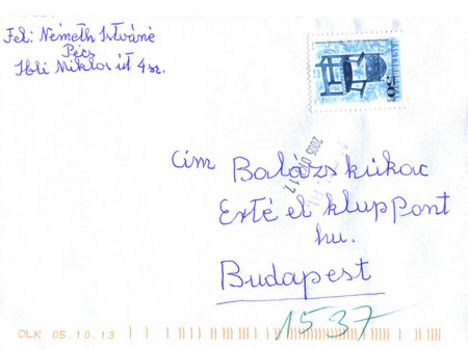 Fel: Németh Istváné
Pécs
Ibli Miklos út 4 sz.
50
2005 07 17
Cím Balázskukac
Exté el kluppont
hu.
Budapest
1537
OLK 05.10.13